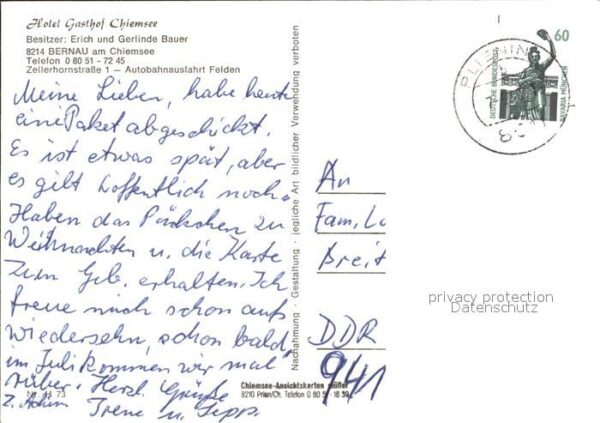 Hotel Gasthof Chiemsee
Besitzer: Erich und Gerlinde Bauer
8214 BERNAU am Chiemsee
Telefon 0 80 51 - 72 45
Zellerhornstraße 1 — Autobahnausfahrt Felden
Meine Lieben, habe heute
eine Paket abgeschickt.
Es ist etwas spät, aber
es gilt hoffentlich noch.
Haben das Päckchen zu
Weihnachten u. die Karte
zum Geb. erhalten. Ich
freue mich schon aufs
wiedersehn, schon bald,
im Juli kommen wir mal
rüber. Herzl. Grüße
Irene u. Sepp.
Nr. 73
Nachahmung · Gestaltung · jegliche Art bildlicher Verwendung verboten
Chiemsee-Ansichtskarten Müller
8210 Prien/Ch. Telefon 0 80 5 18 39
60
DEUTSCHE BUNDESPOST
BAVARIA MÜNCHEN
PLIENIN
An
Fam. Lo
Breit
DDR
941
privacy protection
Datenschutz